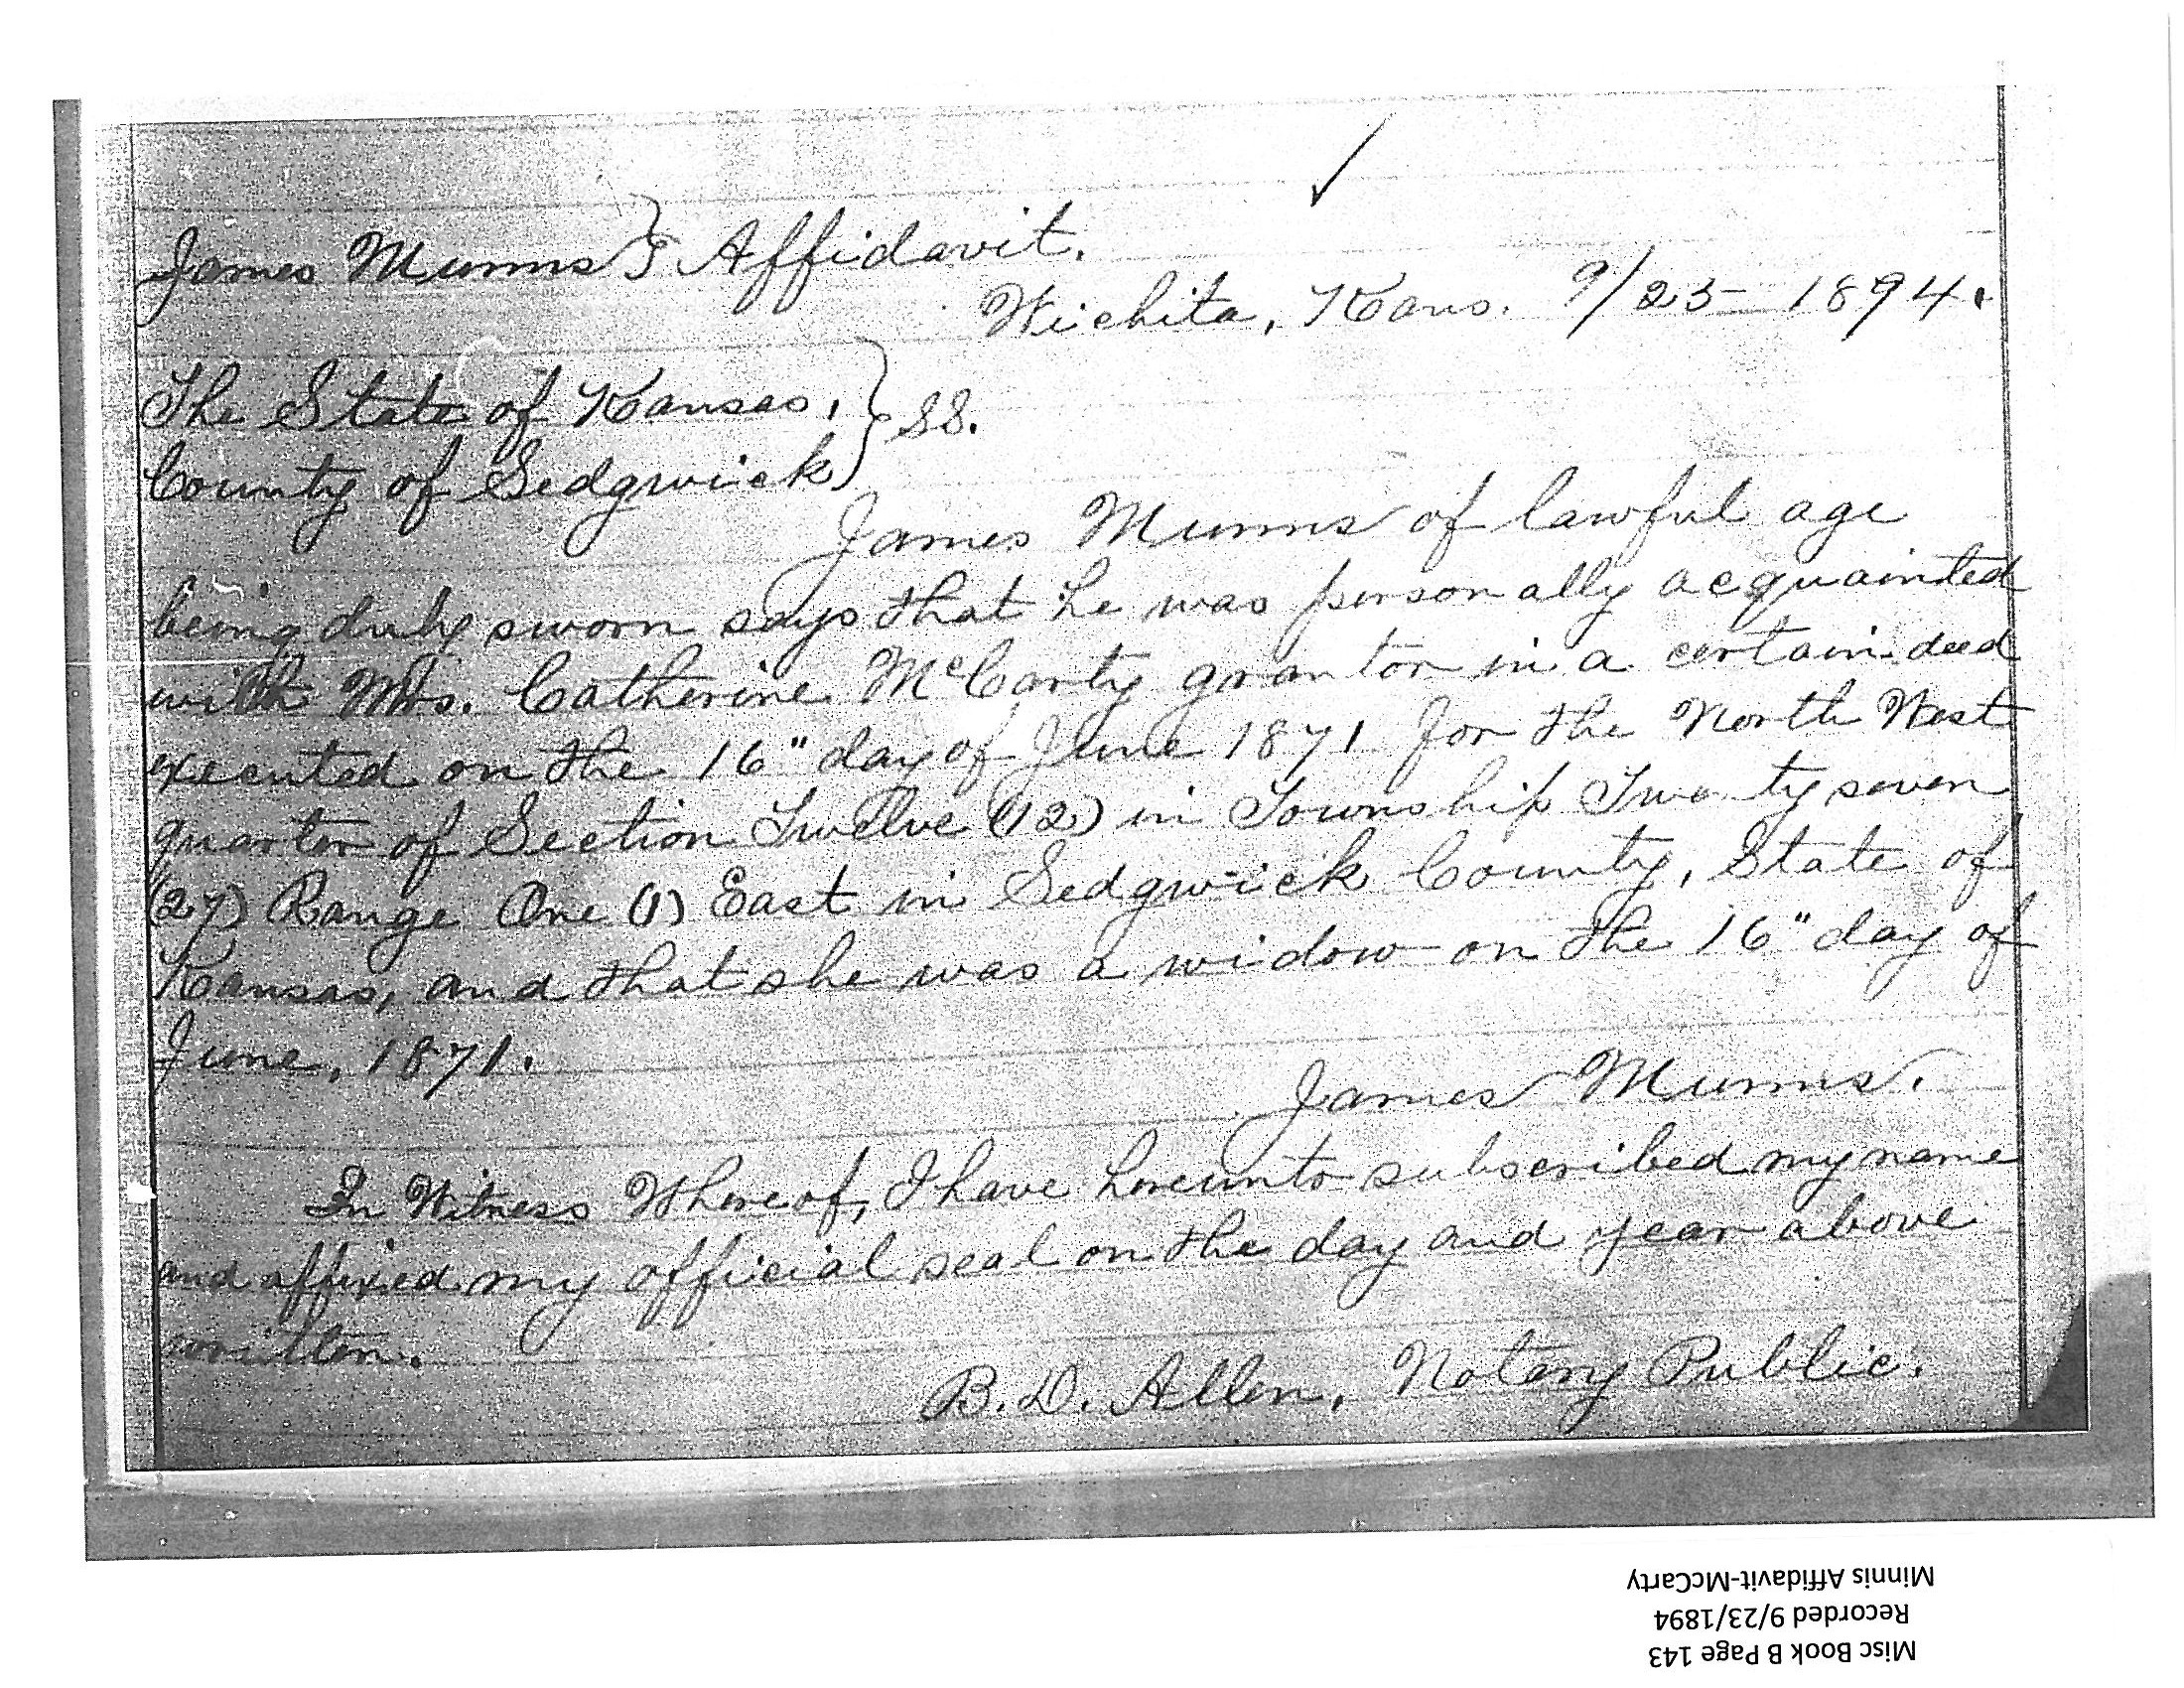 James Munns } Affidavit.
Wichita, Kans. 9/25 1894.
The State of Kansas, } SS.
County of Sedgwick
James Munns of lawful age
being duly sworn says that he was personally acquainted
with Mrs. Catherine McCarty grantor in a certain deed
executed on the 16" day of June 1871 for the North West
quarter of Section Twelve (12) in Township Twenty seven
(27) Range One (1) East in Sedgwick County, State of
Kansas, and that she was a widow on the 16" day of
June, 1871.
James Munns.
In Witness Whereof, I have hereunto subscribed my name
and affixed my official seal on the day and year above
written.
B. D. Allen, Notary Public.
Misc Book B Page 143
Recorded 9/23/1894
Minnis Affidavit-McCarty